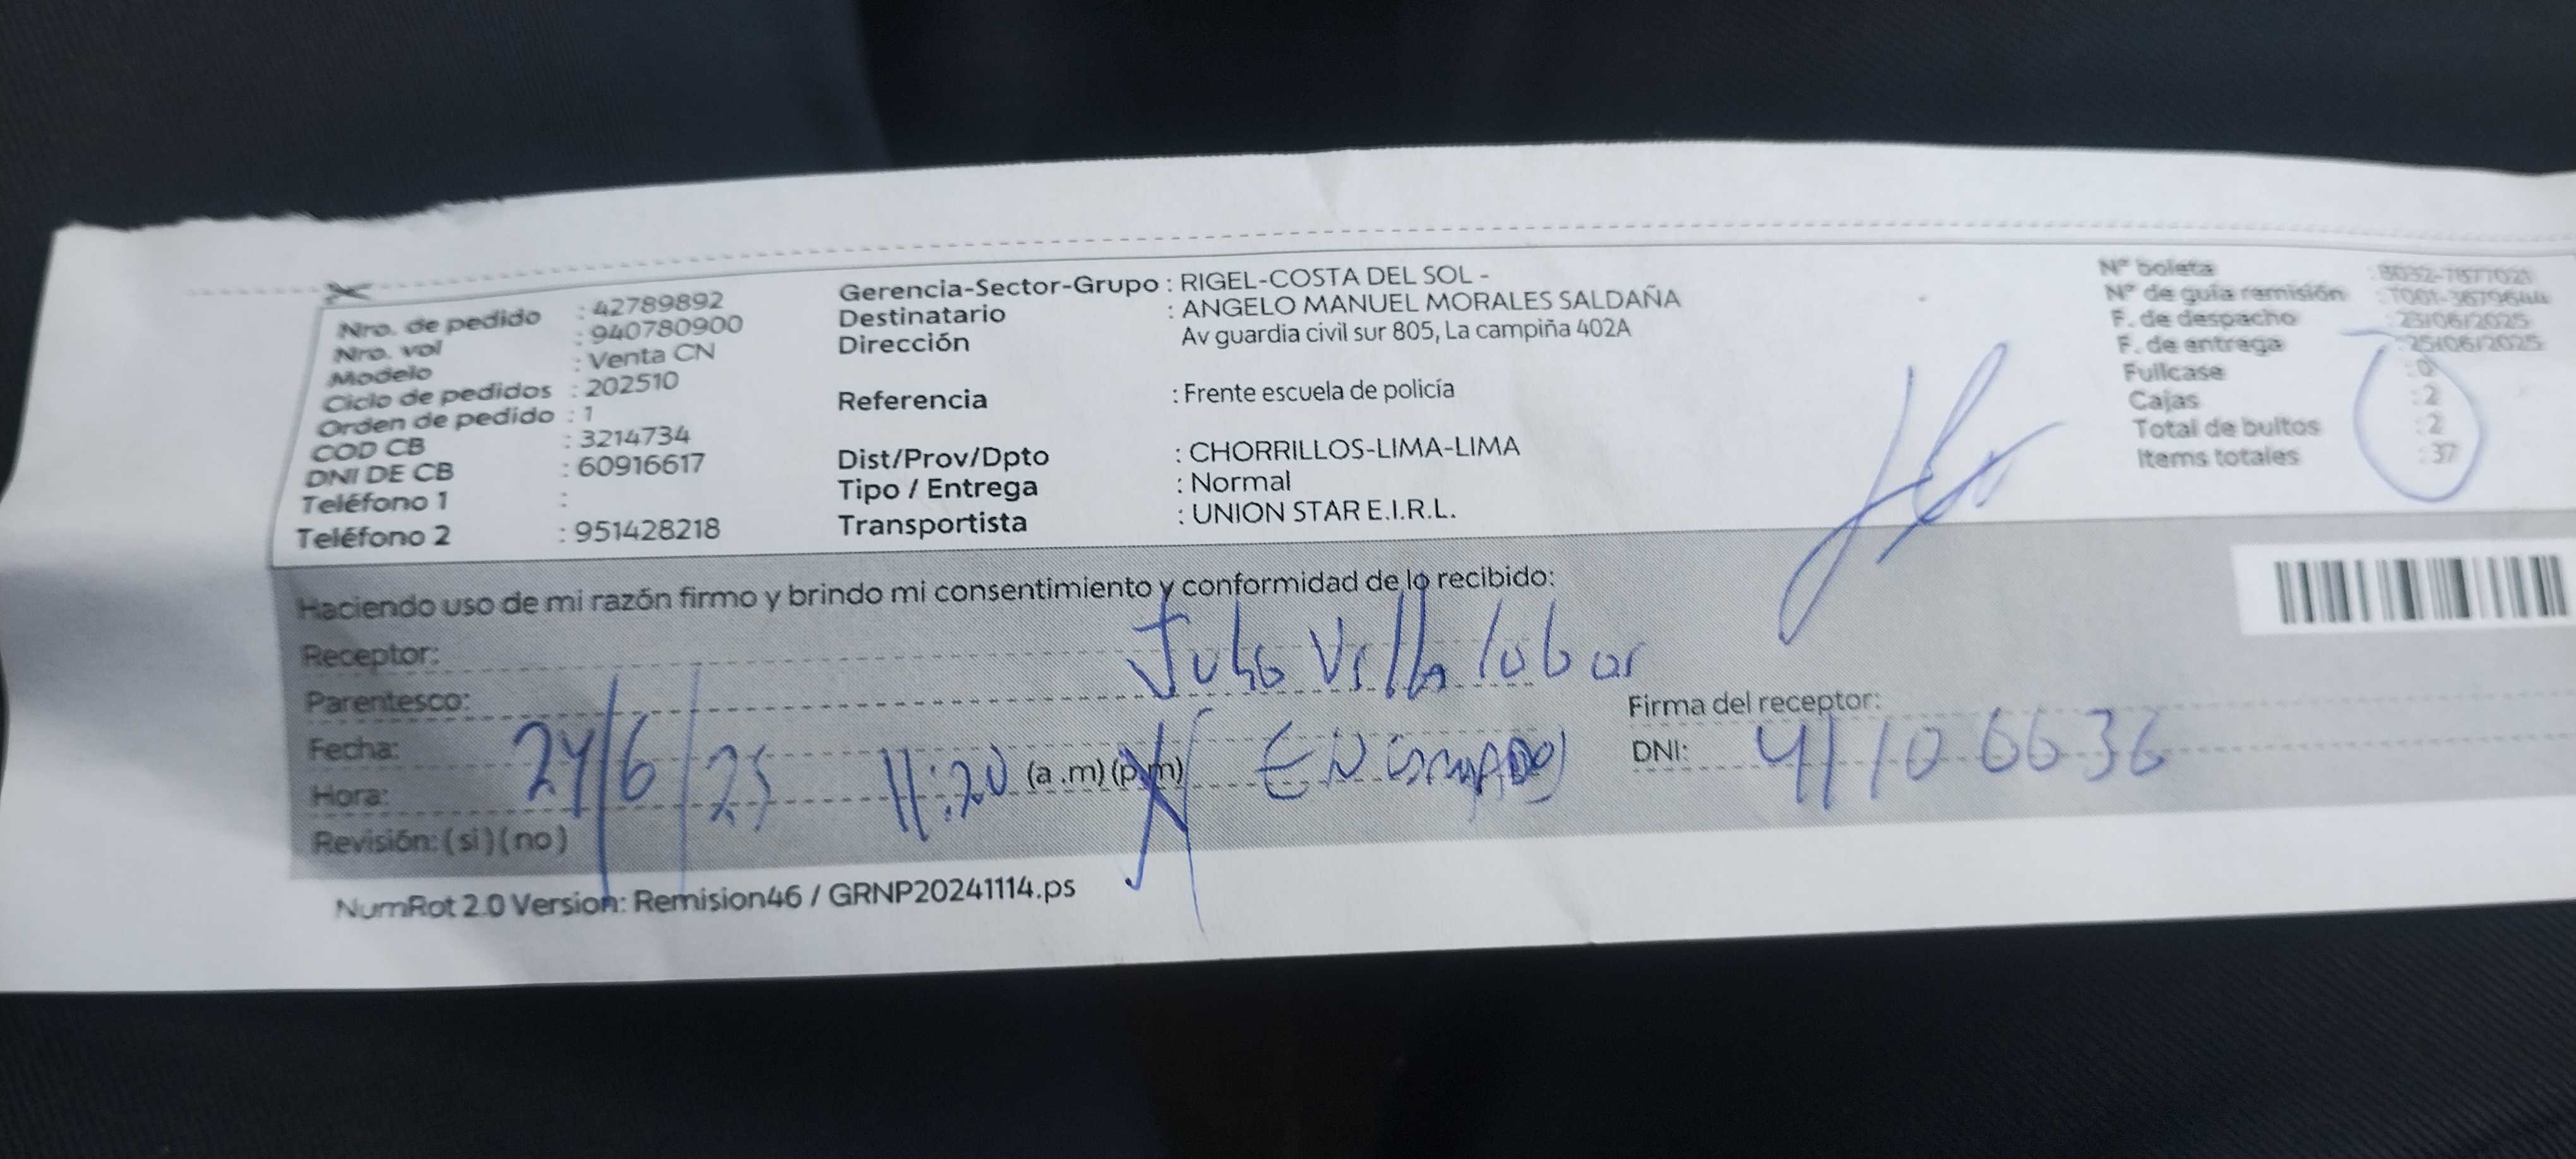 Nro. de pedido : 42789892
Nro. vol : 940780900
Modelo : Venta CN
Ciclo de pedidos : 202510
Orden de pedido : 1
COD CB : 3214734
DNI DE CB : 60916617
Teléfono 1 :
Teléfono 2 : 951428218
Gerencia-Sector-Grupo : RIGEL-COSTA DEL SOL -
Destinatario : ANGELO MANUEL MORALES SALDAÑA
Dirección Av guardia civil sur 805, La campiña 402A
Referencia : Frente escuela de policía
Dist/Prov/Dpto : CHORRILLOS-LIMA-LIMA
Tipo / Entrega : Normal
Transportista : UNION STAR E.I.R.L.
Nº boleta
Nº de guía remisión
F. de despacho : 23/06/2025
F. de entrega : 25/06/2025
Fullcase : 0
Cajas : 2
Total de bultos : 2
Items totales : 37
Haciendo uso de mi razón firmo y brindo mi consentimiento y conformidad de lo recibido:
Receptor: Julio Villalobos
Parentesco:
Firma del receptor:
Fecha: 24/6/25
DNI: 41106636
Hora: 11:20 (a .m) (p.m)
Revisión: ( si ) ( no )
NumRot 2.0 Version: Remision46 / GRNP20241114.ps